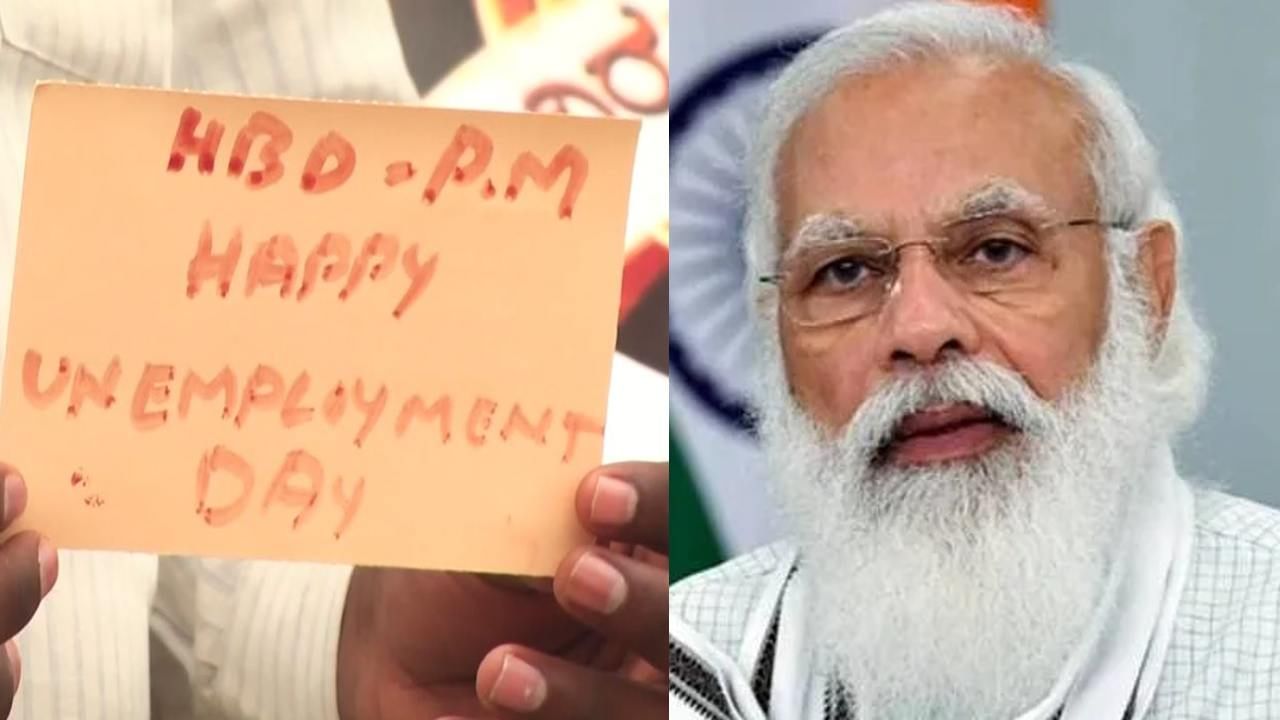 HBD - P.M
HAPPY
UNEMPLOYMENT
DAY